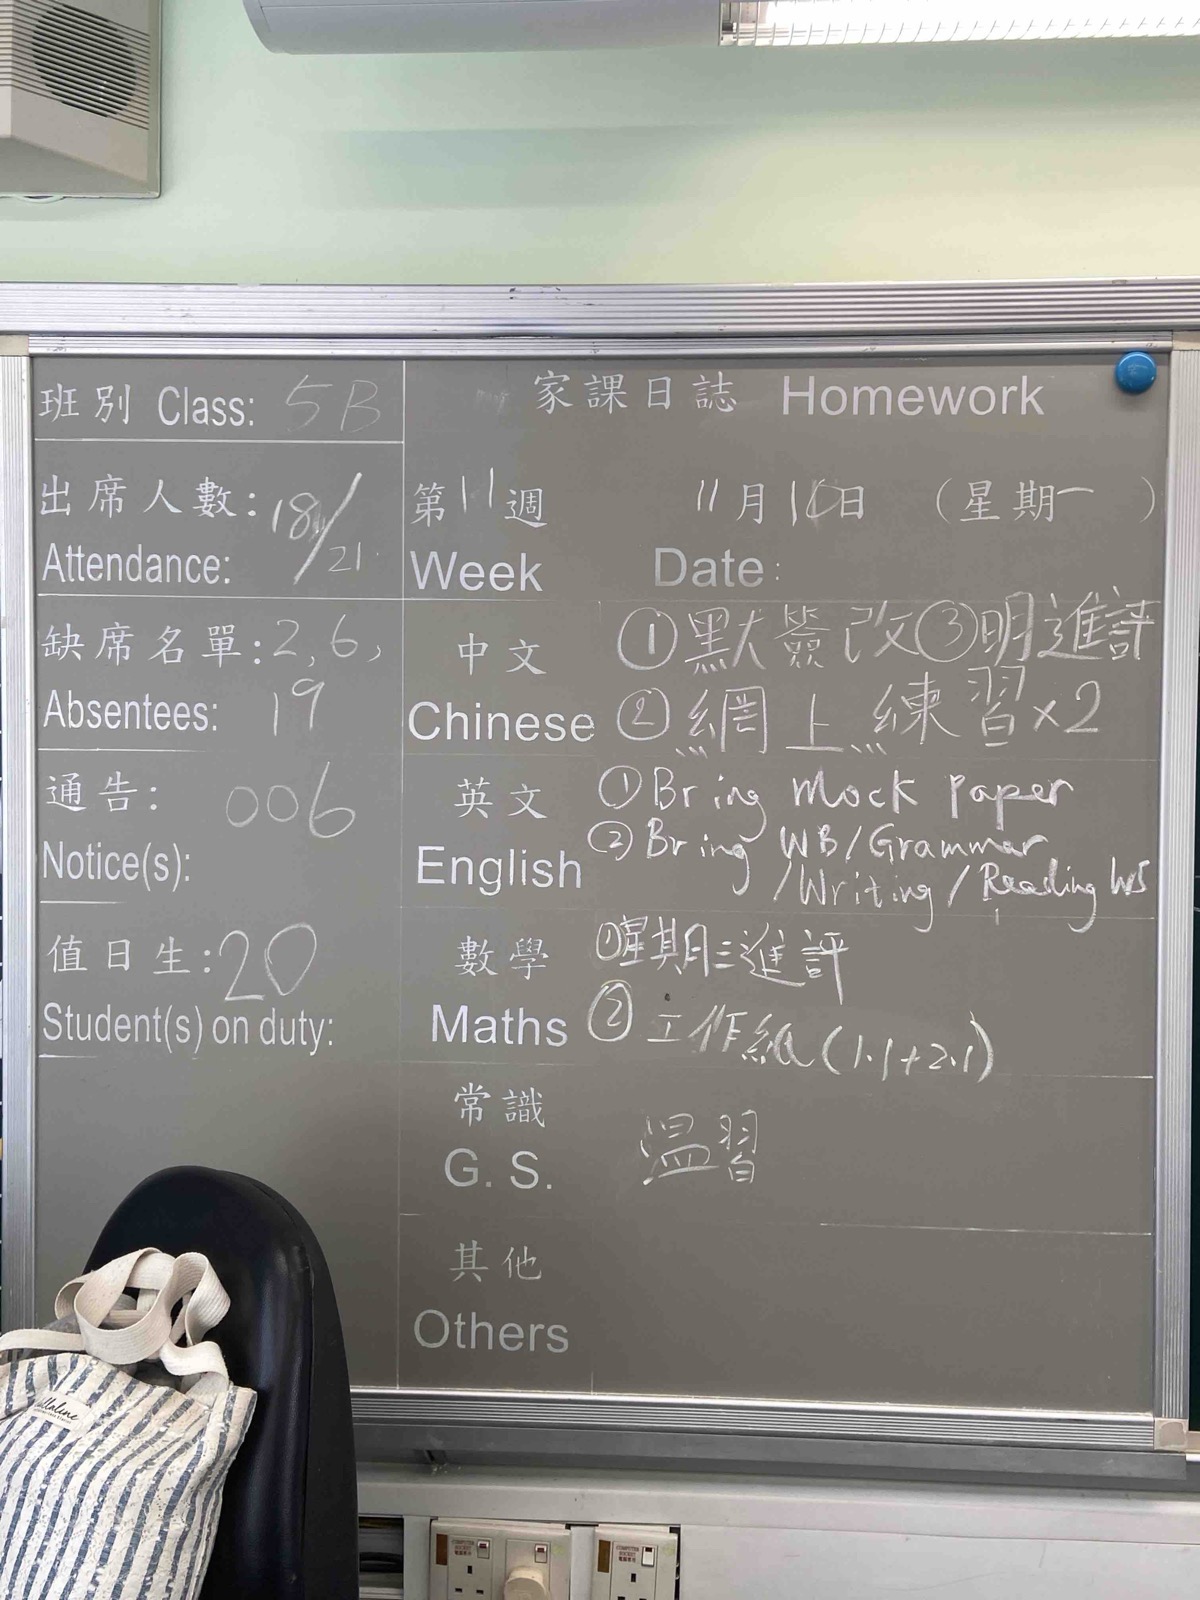 班別 Class: 5B
出席人數: 18/21
Attendance:
缺席名單: 2, 6,
Absentees: 19
通告: 006
Notice(s):
值日生: 20
Student(s) on duty:
家課日誌 Homework
第11週 11月10日 (星期一)
Week Date:
中文 ①默簽改③明進評
Chinese ②網上練習×2
英文 ①Bring Mock Paper
②Bring WB/Grammar
English /Writing/Reading WS
數學 ①星期三進評
Maths ②工作紙(1.1+2.1)
常識
G. S. 温習
其他
Others